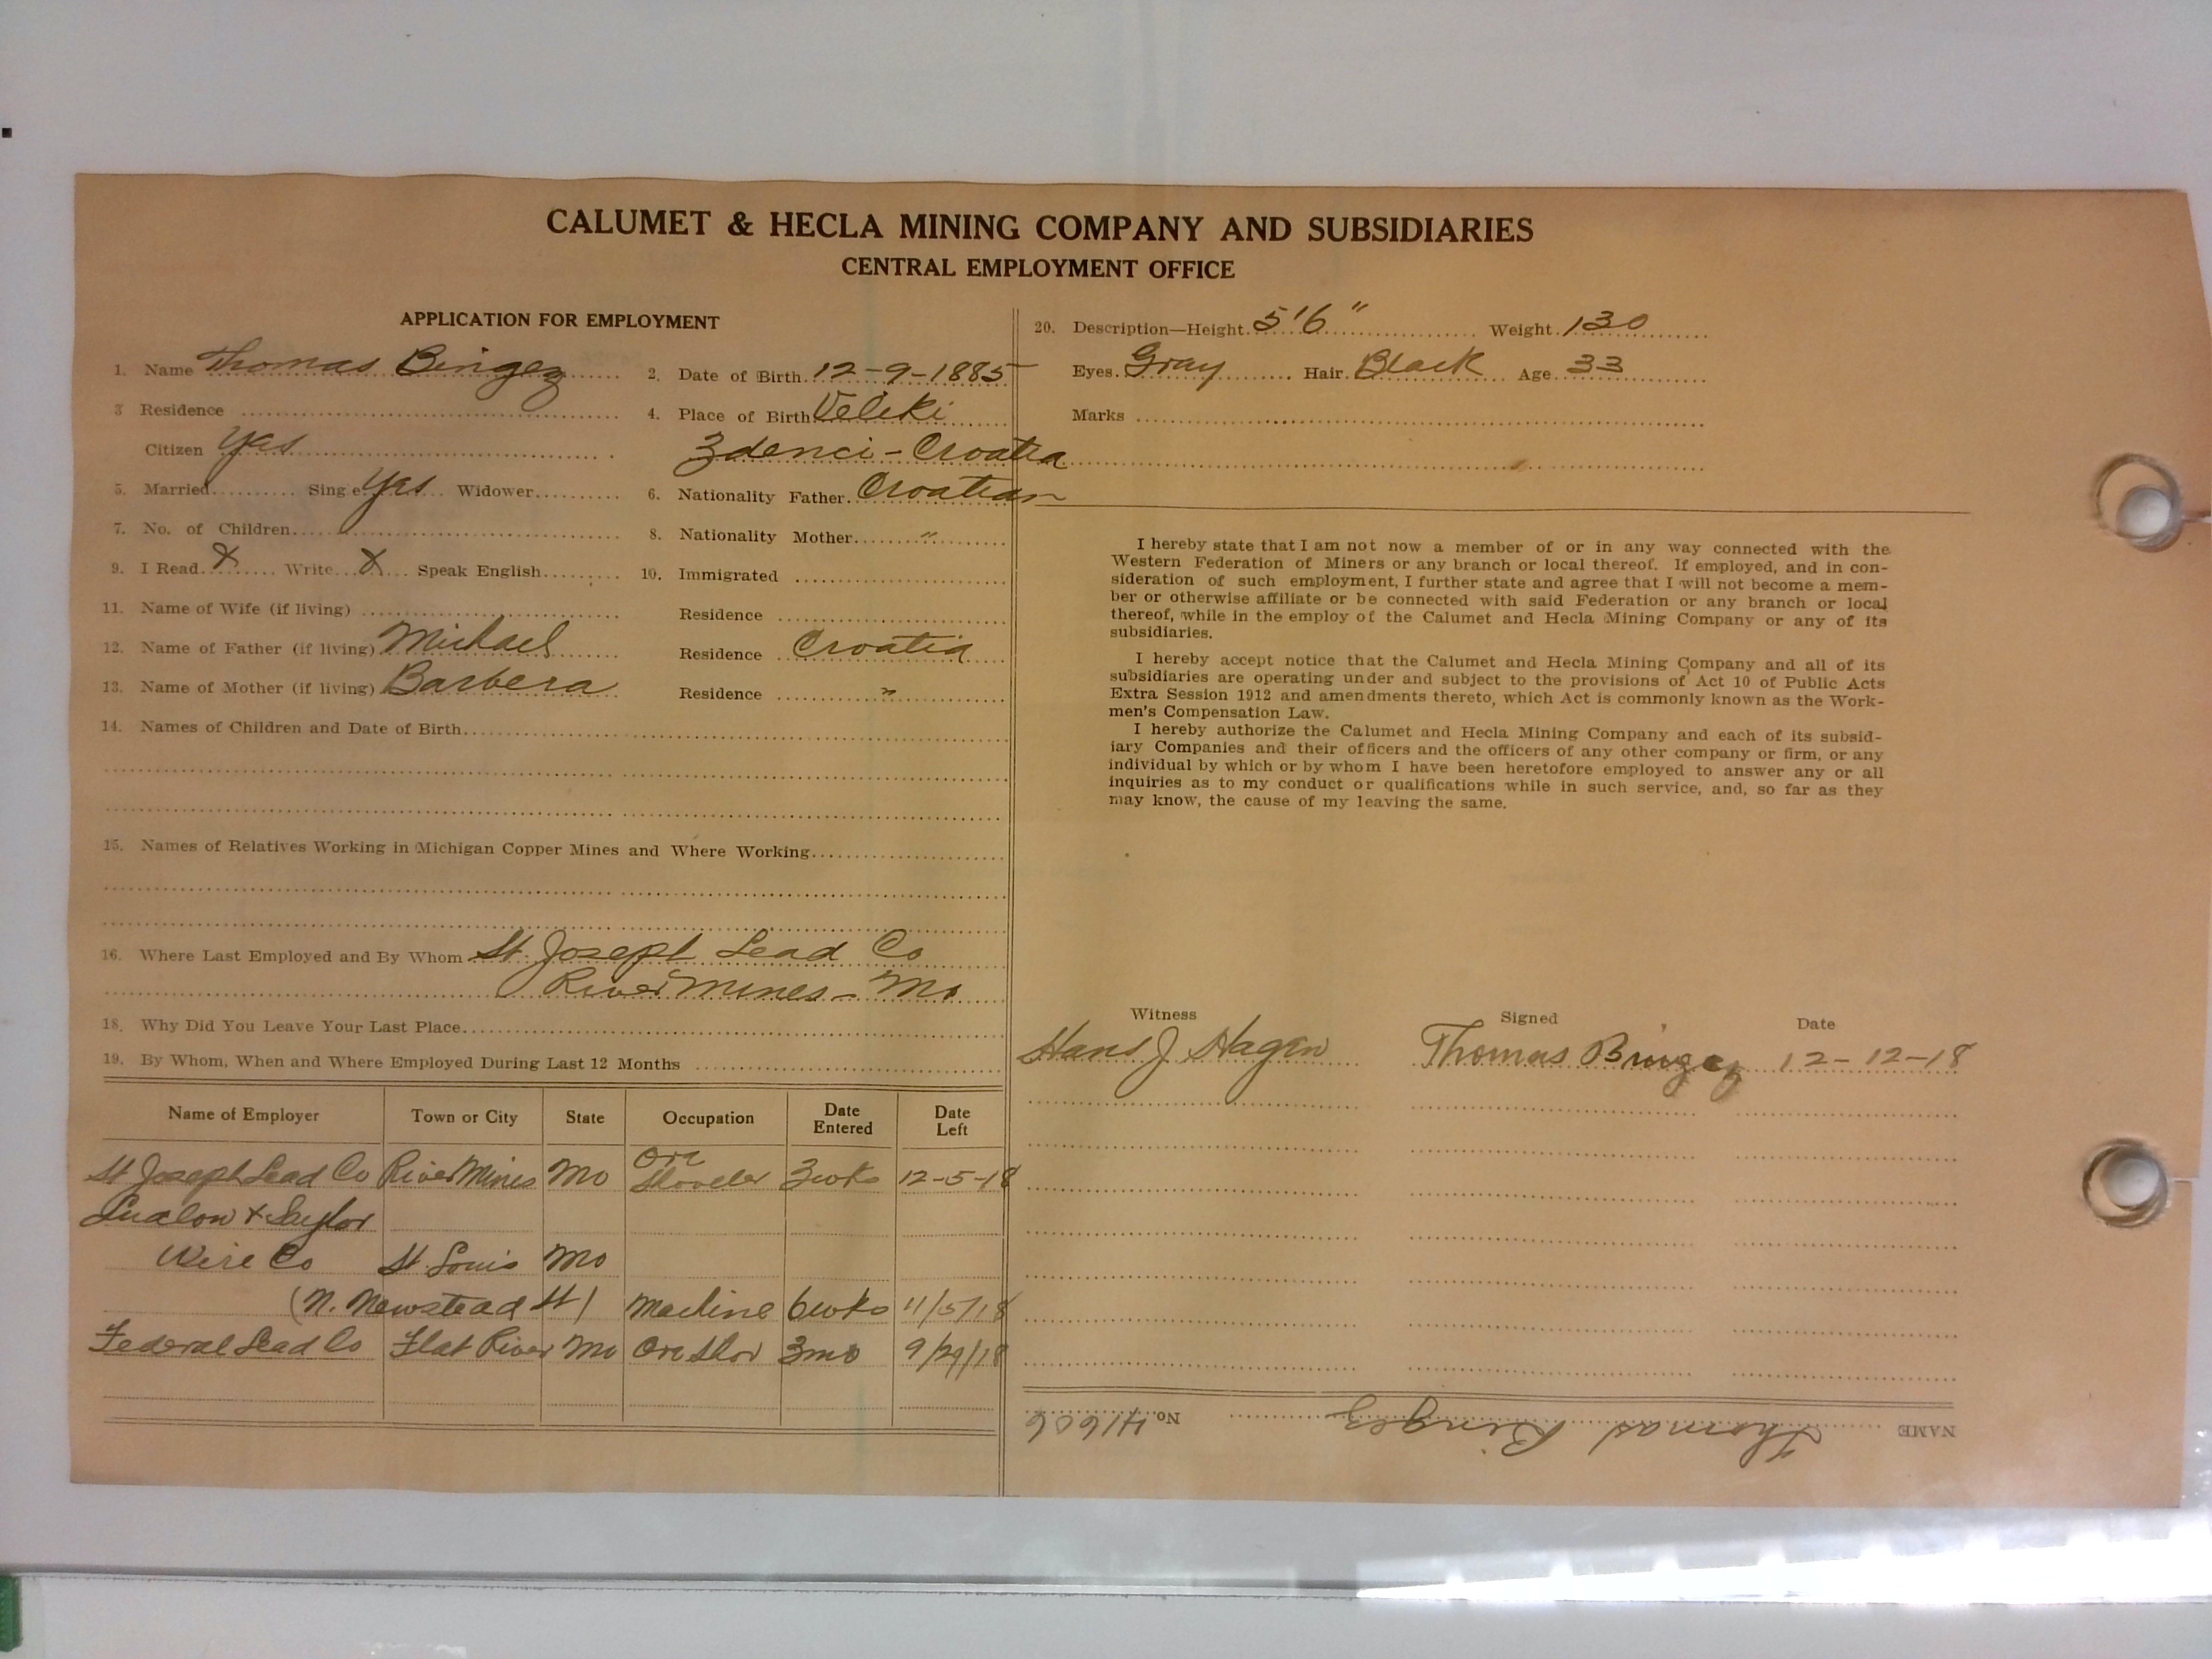 CALUMET & HECLA MINING COMPANY AND SUBSIDIARIES
CENTRAL EMPLOYMENT OFFICE
APPLICATION FOR EMPLOYMENT
1. Name Thomas Bingez
2. Date of Birth 12-9-1885
3 Residence
4. Place of Birth Veleki
Citizen Yes
Zdenci - Croatia
5. Married Single Yes Widower
6. Nationality Father Croatian
7. No. of Children
8. Nationality Mother "
9. I Read X Write X Speak English
10. Immigrated
11. Name of Wife (if living)
Residence
12. Name of Father (if living) Michael
Residence Croatia
13. Name of Mother (if living) Barbera
Residence "
14. Names of Children and Date of Birth
15. Names of Relatives Working in Michigan Copper Mines and Where Working
16. Where Last Employed and By Whom St. Joseph Lead Co
River Mines - Mo
18. Why Did You Leave Your Last Place
19. By Whom, When and Where Employed During Last 12 Months
Name of Employer Town or City State Occupation Date Entered Date Left
St Joseph Lead Co River Mines Mo Ore Shoveler 3wks 12-5-18
Ludlow & Saylor
Wire Co St. Louis Mo
(N. Newstead St) Machine 6wks 11/5/18
Federal Lead Co Flat River Mo Ore Shov 3mo 9/29/18
20. Description—Height 5'6" Weight 130
Eyes Gray Hair Black Age 33
Marks
I hereby state that I am not now a member of or in any way connected with the
Western Federation of Miners or any branch or local thereof. If employed, and in con-
sideration of such employment, I further state and agree that I will not become a mem-
ber or otherwise affiliate or be connected with said Federation or any branch or local
thereof, while in the employ of the Calumet and Hecla Mining Company or any of its
subsidiaries.
I hereby accept notice that the Calumet and Hecla Mining Company and all of its
subsidiaries are operating under and subject to the provisions of Act 10 of Public Acts
Extra Session 1912 and amendments thereto, which Act is commonly known as the Work-
men's Compensation Law.
I hereby authorize the Calumet and Hecla Mining Company and each of its subsid-
iary Companies and their officers and the officers of any other company or firm, or any
individual by which or by whom I have been heretofore employed to answer any or all
inquiries as to my conduct or qualifications while in such service, and, so far as they
may know, the cause of my leaving the same.
Witness Signed Date
Hans J. Hagen Thomas Bingez 12-12-18
NAME Thomas Bingez No. 41606